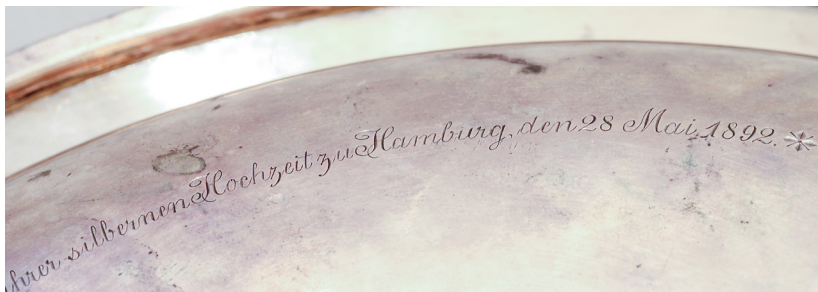 ihrer silbernen Hochzeit zu Hamburg, den 28 Mai 1892.